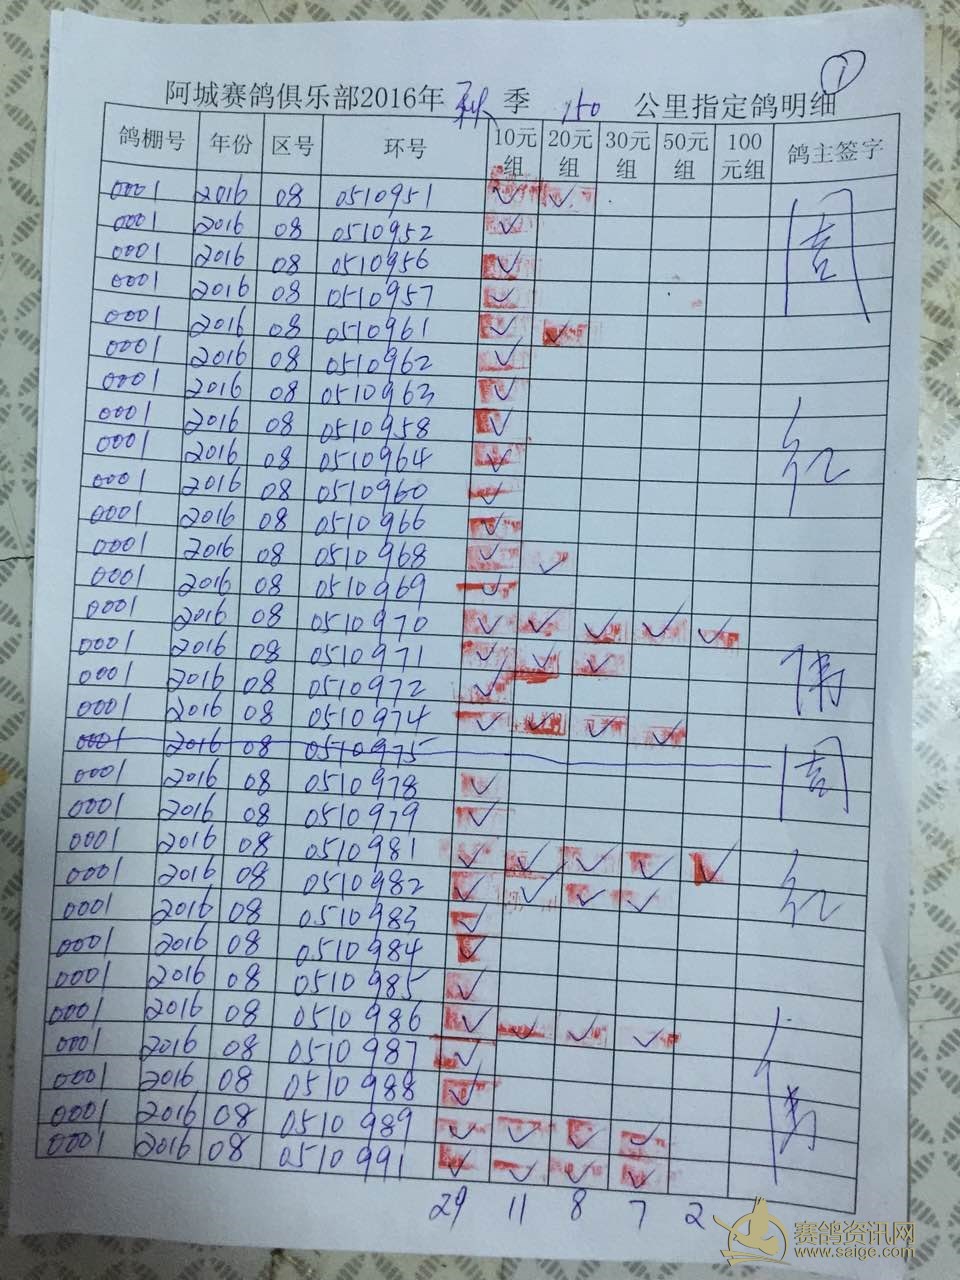 ①
阿城赛鸽俱乐部2016年 秋 季 150 公里指定鸽明细
鸽棚号 年份 区号 环号 10元组 20元组 30元组 50元组 100元组 鸽主签字
0001 2016 08 0510951 ✓ ✓
0001 2016 08 0510952 ✓
0001 2016 08 0510956 ✓
0001 2016 08 0510957 ✓
0001 2016 08 0510961 ✓ ✓
0001 2016 08 0510962 ✓
0001 2016 08 0510963 ✓
0001 2016 08 0510958 ✓
0001 2016 08 0510964 ✓
0001 2016 08 0510960 ✓
0001 2016 08 0510966 ✓
0001 2016 08 0510968 ✓ ✓
0001 2016 08 0510969 ✓
0001 2016 08 0510970 ✓ ✓ ✓ ✓ ✓
0001 2016 08 0510971 ✓ ✓ ✓
0001 2016 08 0510972 ✓
0001 2016 08 0510974 ✓ ✓ ✓ ✓
0001 2016 08 0510975
0001 2016 08 0510978 ✓
0001 2016 08 0510979 ✓
0001 2016 08 0510981 ✓ ✓ ✓ ✓ ✓
0001 2016 08 0510982 ✓ ✓ ✓ ✓
0001 2016 08 0510983 ✓
0001 2016 08 0510984 ✓
0001 2016 08 0510985 ✓
0001 2016 08 0510986 ✓ ✓ ✓ ✓
0001 2016 08 0510987 ✓
0001 2016 08 0510988 ✓
0001 2016 08 0510989 ✓ ✓ ✓ ✓
0001 2016 08 0510991 ✓ ✓ ✓ ✓
29 11 8 7 2
周
红
伟
周
红
伟
赛鸽资讯网
www.saige.com